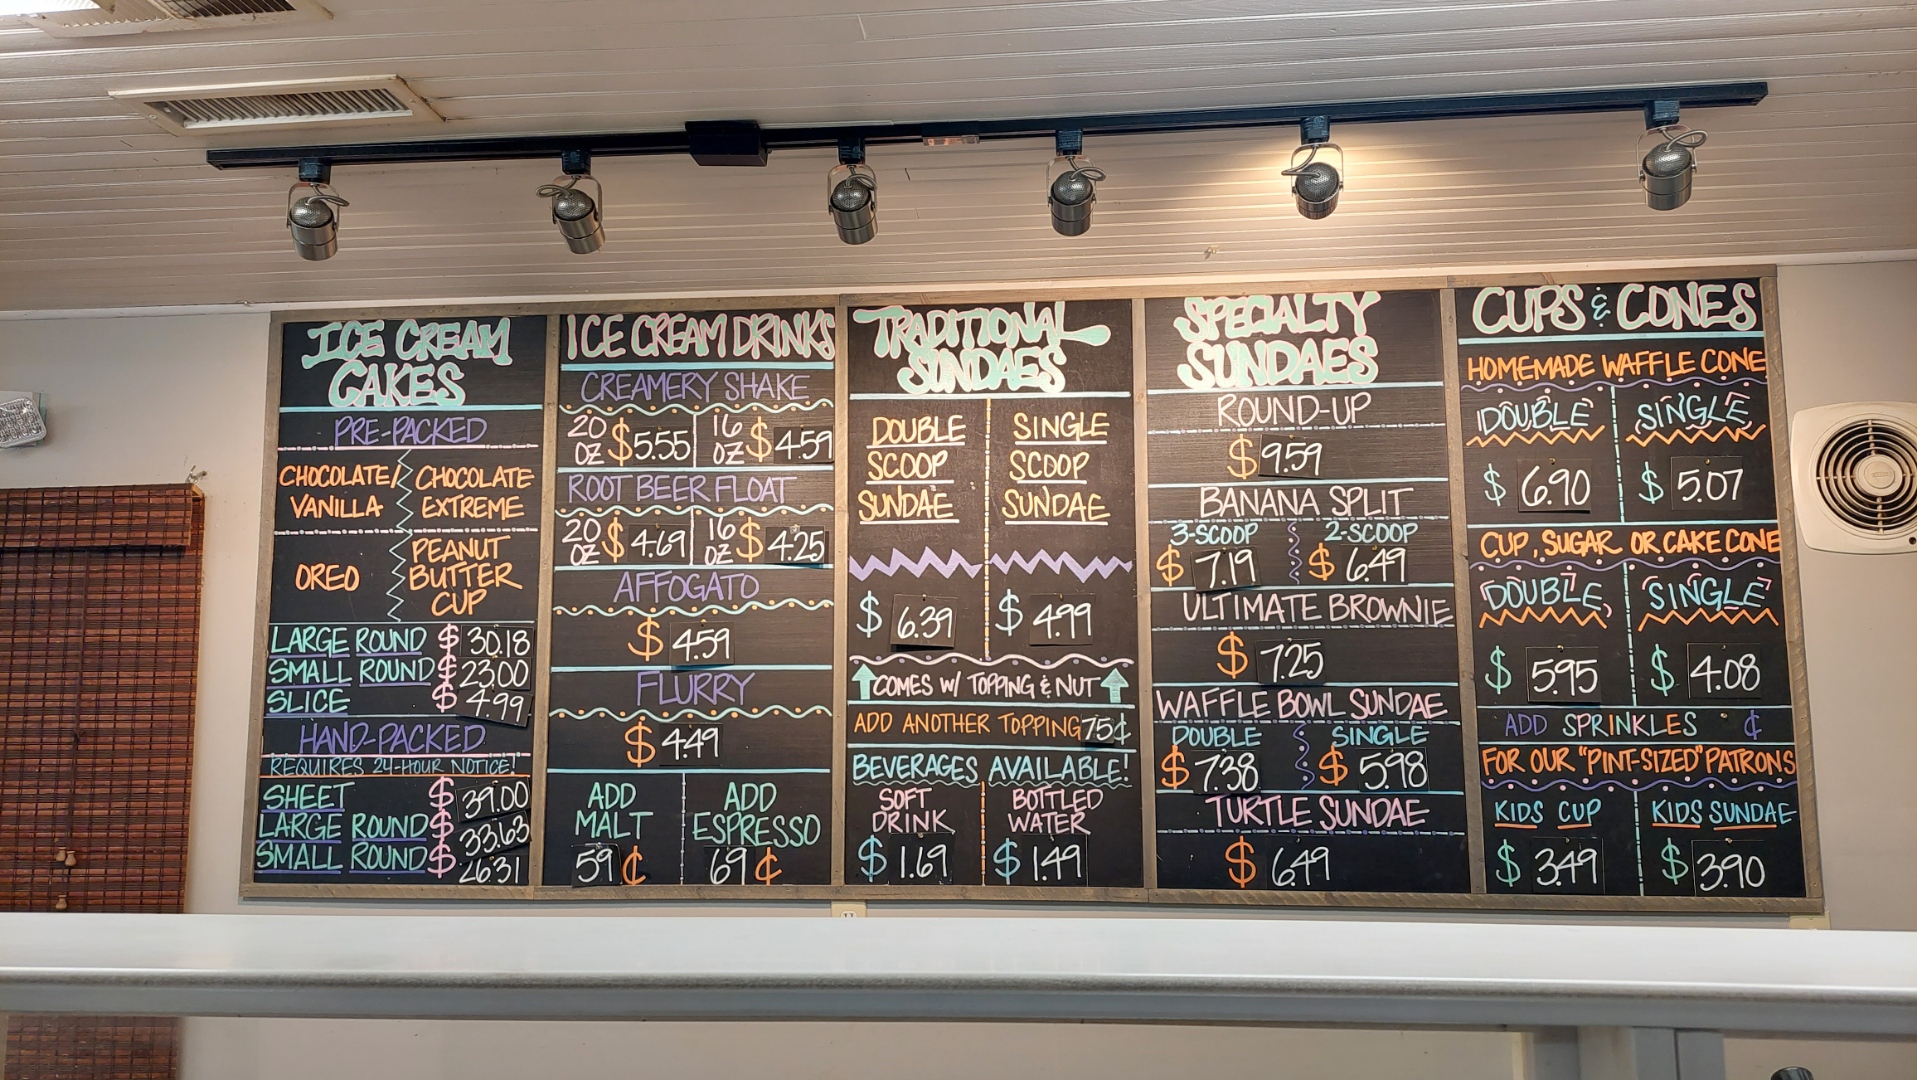 ICE CREAM
CAKES
PRE-PACKED
CHOCOLATE/
VANILLA
CHOCOLATE
EXTREME
OREO
PEANUT
BUTTER
CUP
LARGE ROUND $ 30.18
SMALL ROUND $ 23.00
SLICE $ 4.99
HAND-PACKED
REQUIRES 24-HOUR NOTICE!
SHEET $ 39.00
LARGE ROUND $ 33.63
SMALL ROUND $ 26.31
ICE CREAM DRINKS
CREAMERY SHAKE
20 OZ $ 5.55 16 OZ $ 4.59
ROOT BEER FLOAT
20 OZ $ 4.69 16 OZ $ 4.25
AFFOGATO
$ 4.59
FLURRY
$ 4.49
ADD
MALT
59 ¢
ADD
ESPRESSO
69 ¢
TRADITIONAL
SUNDAES
DOUBLE
SCOOP
SUNDAE
$ 6.39
SINGLE
SCOOP
SUNDAE
$ 4.99
COMES W/ TOPPING & NUT
ADD ANOTHER TOPPING 75¢
BEVERAGES AVAILABLE!
SOFT
DRINK
$ 1.69
BOTTLED
WATER
$ 1.49
SPECIALTY
SUNDAES
ROUND-UP
$ 9.59
BANANA SPLIT
3-SCOOP 2-SCOOP
$ 7.19 $ 6.49
ULTIMATE BROWNIE
$ 7.25
WAFFLE BOWL SUNDAE
DOUBLE SINGLE
$ 7.38 $ 5.98
TURTLE SUNDAE
$ 6.49
CUPS & CONES
HOMEMADE WAFFLE CONE
DOUBLE SINGLE
$ 6.90 $ 5.07
CUP, SUGAR OR CAKE CONE
DOUBLE SINGLE
$ 5.95 $ 4.08
ADD SPRINKLES ¢
FOR OUR "PINT-SIZED" PATRONS
KIDS CUP KIDS SUNDAE
$ 3.49 $ 3.90